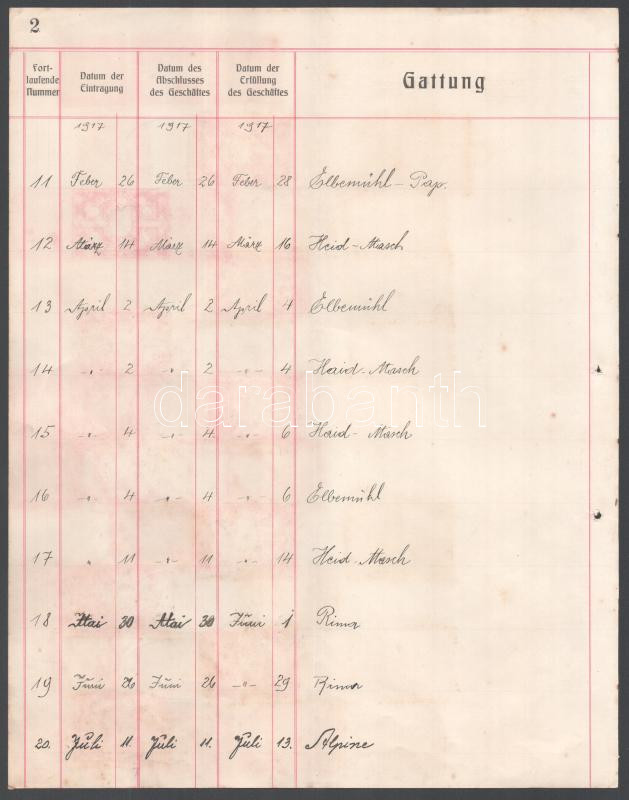 2
Fort-laufende Nummer | Datum der Eintragung | Datum des Abschlusses des Geschäftes | Datum der Erfüllung des Geschäftes | Gattung
1917 | 1917 | 1917
11 Feber 26 Feber 26 Feber 28 Elbemühl - Pap.
12 März 14 März 14 März 16 Heid - Masch
13 April 2 April 2 April 4 Elbemühl
14 -"- 2 -"- 2 -"- 4 Haid - Masch
darabanth
15 -"- 4 -"- 4 -"- 6 Haid - Masch
16 -"- 4 -"- 4 -"- 6 Elbemühl
17 " 11 -"- 11 -"- 14 Heid - Masch
18 Mai 30 Mai 30 Juni 1 Rima
19 Juni 26 Juni 26 -"- 29 Rima
20. Juli 11. Juli 11. Juli 13. Alpine